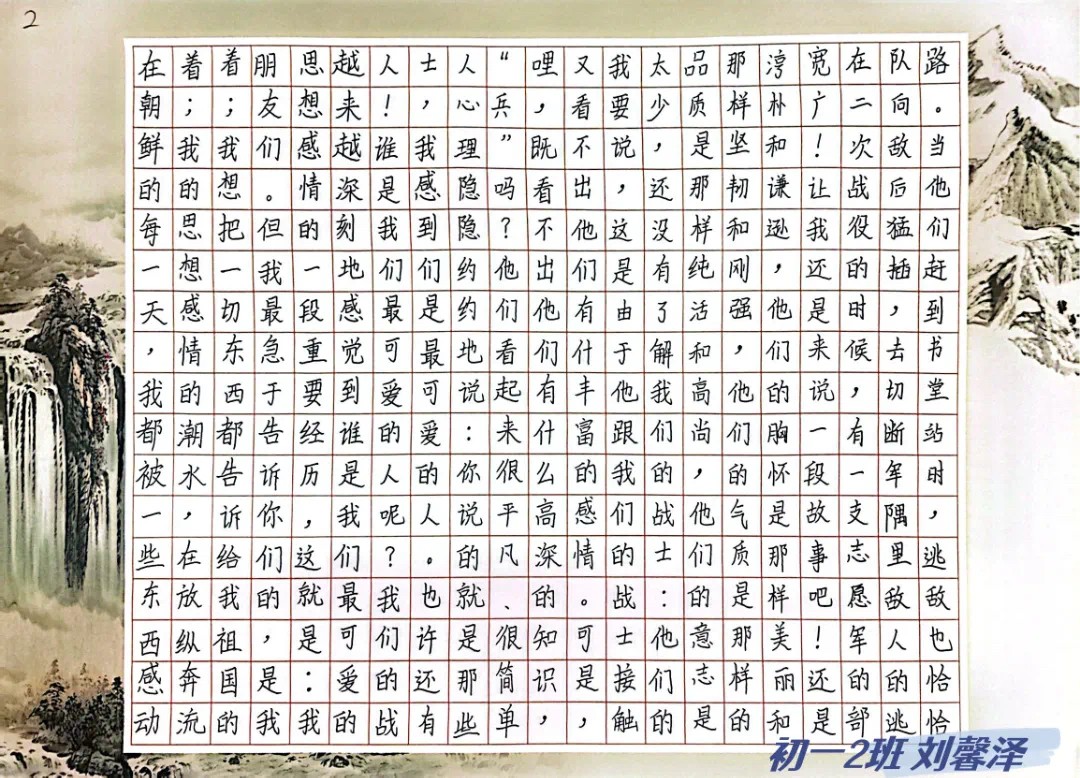 在朝鲜的每一天，我都被一些东西感动
着；我的思想感情的潮水，在放纵奔流
着；我想把一切东西都告诉给我祖国的
朋友们。但我最急于告诉你们的，是我
思想感情的一段重要经历，这就是：我
越来越深刻地感觉到谁是我们最可爱的
人！谁是我们最可爱的人呢？我们的战
士，我感到们是最可爱的人。也许还有
人心理隐隐约约地说：你说的就是那些
“兵”吗？他们看起来很平凡、很简单
哩，既看不出他们有什么高深的知识，
又看不出他们有什丰富的感情。可是，
我要说，这是由于他跟我们的战士接触
太少，还没有了解我们的战士：他们的
品质是那样纯活和高尚，他们的意志是
那样坚韧和刚强，他们的气质是那样的
淳朴和谦逊，他们的胸怀是那样美丽和
宽广！让我还是来说一段故事吧！还是
在二次战役的时候，有一支志愿军的部
队向敌后猛插，去切断军隅里敌人的逃
路。当他们赶到书堂站时，逃敌也恰恰
2
初一2班 刘馨泽